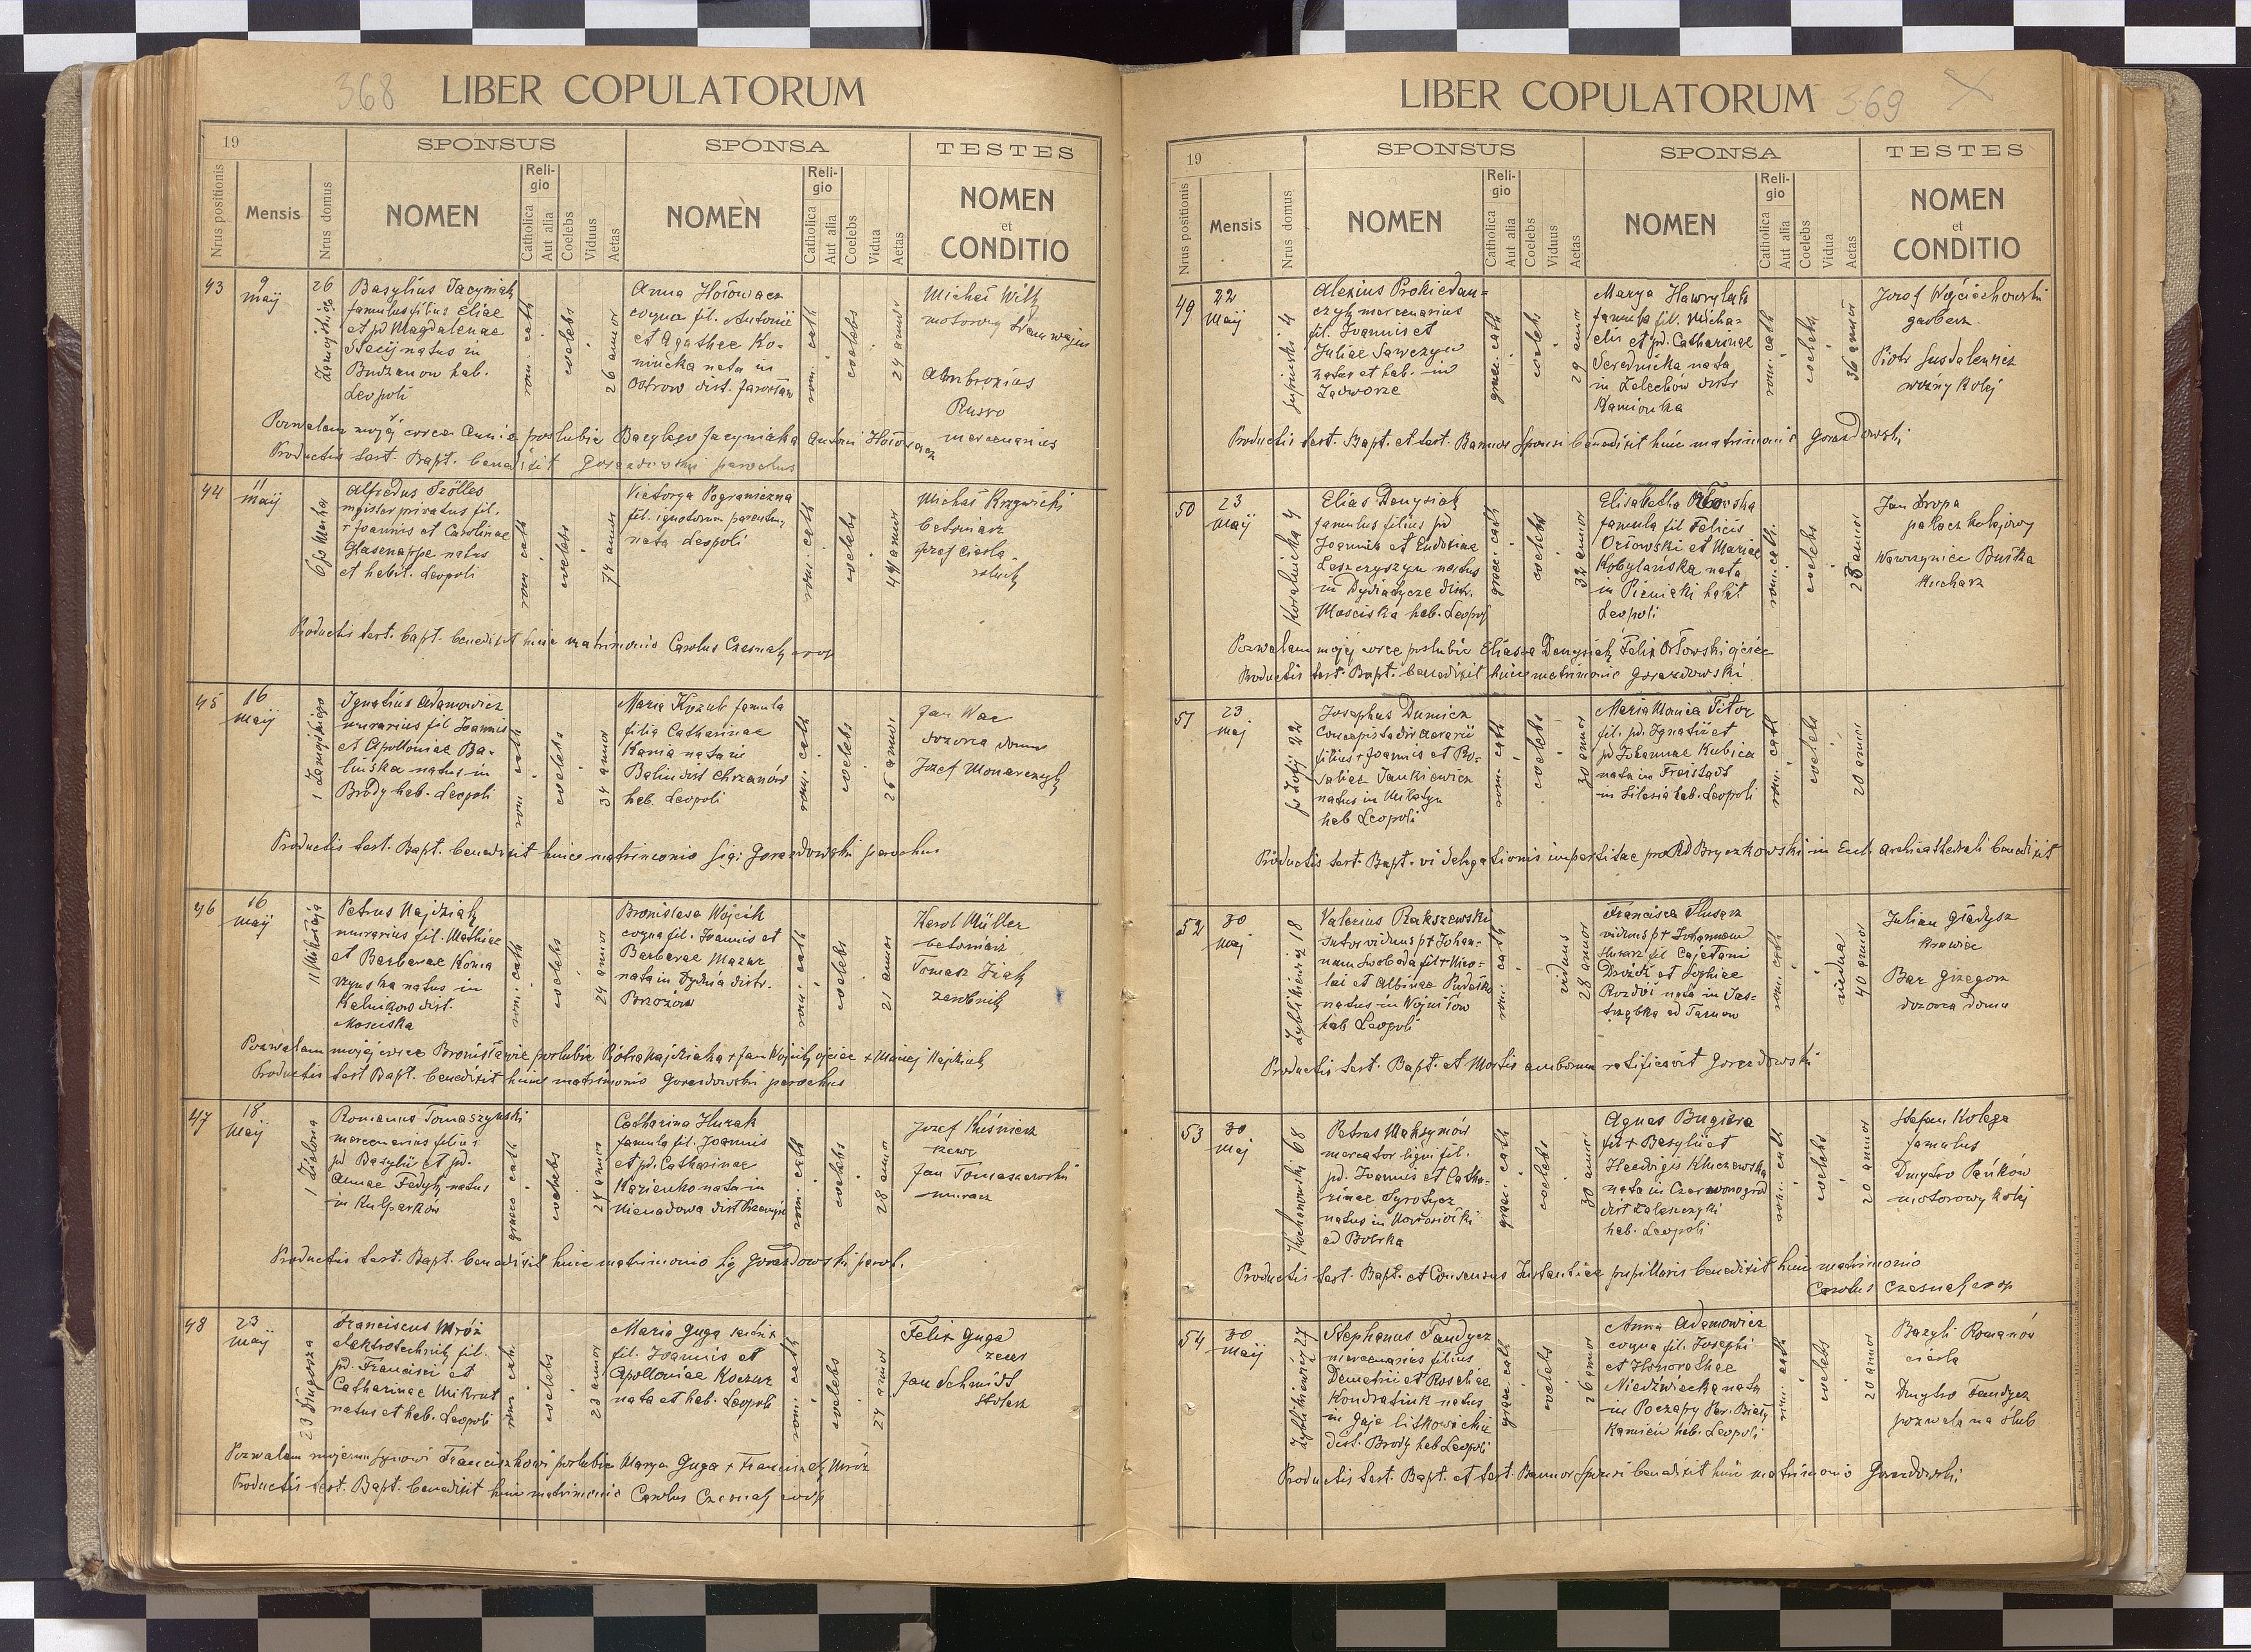 368
LIBER COPULATORUM
19
SPONSUS
SPONSA
TESTES
Nrus positionis
Mensis
Nrus domus
NOMEN
Religio
Catholica
Aut alia
Coelebs
Viduus
Aetas
NOMEN
Religio
Catholica
Aut alia
Coelebs
Vidua
Aetas
NOMEN
et
CONDITIO
43
9
Maij
26
Basylius Jacyniak
famulus filius Eliae
et pd Magdalenae
natus in
Budzanow hab.
Leopoli
rom. cath
coelebs
26 annor
Anna Hołowacz
coqua fil. Antonii
et Agathae Ko-
nińcka nata in
Ostrow dist. Jarosław
rom. cath
coelebs
24 annor
Michał Wilk
motorowy tramwajów
Ambrozius
Russo
mercenarius
Pozwalam mojéj córce Annie poślubić Bazylego Jacyniaka Antoni Hołowacz
Productis test. Bapt. benedixit Gorazdowski parochus
44
11
Maij
Alfredus Szölles
magister privatus fil.
+ Joannis et Carolinae
Glasenappe natus
et habit. Leopoli
rom cath
coelebs
74 annor
Victorya Pograniczna
fil. ignotorum parentum
nata Leopoli
rom. cath
coelebs
49 annor
Michał Krzywicki
betoniarz
Józef Ciesla
rolnik
Productis test. bapt. benedixit huic matrimonio Carolus Czesnak coop
45
16
Maij
1 Zamojskiego
Ignatius Adamowicz
murarius fil Joannis
et Apolloniae Ba-
lińska natus in
Brody hab. Leopoli
rom cath
coelebs
34 annor
Maria Kozub famula
filia Catharinae
Kania nata in
Balin dist Chrzanów
hab. Leopoli
rom. cath
coelebs
25 annor
Jan Wac
dozorca domu
Józef Monarczyk
Productis test. Bapt. benedixit huic matrimonio Sigi Gorazdowski parochus
46
16
Maij
11 Mikołaja
Petrus Najdziak
murarius fil. Mathiae
et Barbarae Konia
natus in
Kalnikow dist.
Mosciska
rom. cath
coelebs
24 annor
Bronislava Wojcik
coqua fil. Joannis et
Barbarae Mazur
nata in Dydnia distr.
Brzozów
rom. cath
coelebs
21 annor
Karol Müller
betoniarz
Tomasz Ziąk
zarobnik
Pozwalam mojéj córce Bronisławie poślubić Piotra Najdziaka + Jan Wojcik ojciec + Maciej Najdziak
Productis test Bapt. benedixit huic matrimonio Gorazdowski parochus
47
18
Maij
1 Zielona
Romanus Tomaszynski
mercenarius filius
pd Basylii et pd.
Annae Fedyk natus
in Kulparków
graeco cath
coelebs
24 annor
Catharina Hurak
famula fil. Joannis
et pd. Catharinae
Kazienko nata in
Nienadowa dist Przemysl
rom. cath
coelebs
28 annor
Józef Kuśnierz
szewc
Jan Tomaszewski
murarz
Productis test. Bapt. benedixit huic matrimonio Sig Gorazdowski paroch.
48
23
Maij
23 Długosza
Franciscus Mróz
elektrotechnik fil.
pd. Francisci et
Catharinae Mikrut
natus et hab. Leopoli
rom cath.
coelebs
23 annor
Maria Guga
fil. Joannis et
Apolloniae Koczur
nata et hab. Leopoli
rom. cath
coelebs
24 annor
Felix Guga
zecer
Jan Schmidt
stolarz
Pozwalam mojemu synowi Franciszkowi poślubić Marya Guga + Franciszek Mróz
Productis test. Bapt. benedixit huic matrimonio Carolus Czesnak coop
LIBER COPULATORUM
369
19
SPONSUS
SPONSA
TESTES
Nrus positionis
Mensis
Nrus domus
NOMEN
Religio
Catholica
Aut alia
Coelebs
Viduus
Aetas
NOMEN
Religio
Catholica
Aut alia
Coelebs
Vidua
Aetas
NOMEN
et
CONDITIO
49
22
Maij
Alexius Prokiedan-
czyk mercenarius
fil. Joannis et
Juliae Sawczyn
natus et hab. in
Zadworze
graec. cath
coeleb
29 annor
Marya Hawrylak
famula fil. Micha-
elis et pd. Catharinae
Serednicka nata
in Zelechów distr
Kamionka
rom. cath
coelebs
36 annor
Jozef Wojciechowski
garbarz
Piotr Susdalewicz
woźny kolej
Productis test. Bapt. et test. Bannor Sponsi benedixit huic matrimonio Gorazdowski
50
23
Maij
Kopalnicka 4
Elias Denysiak
famulus filius pd
Joannis et Eudoxiae
Leszczyszyn natus
in Dydiatycze distr.
Mosciska hab. Leopoli
graec. cath
coelebs
32 annor
Elisabetha Orłowska
famula fil Felicis
Orłowski et Mariae
Kobylańska nata
in Pieniaki habit
Leopoli
rom. cath.
coelebs
Jan Dropa
palacz kolejowy
Wawrzyniec Buśka
kucharz
Pozwalam mojéj córce poślubić Eliasza Denysiak Felix Orłowski ojciec
Productis test. Bapt. benedixit huic matrimonio Gorazdowski
51
23
Maj
św Zofij 22
Josephus Dumicz
Concepista dir aerarii
filius + Joannis et Ro-
saliae Jankiewicz
natus in Milatyn
hab Leopoli
rom. cath
coelebs
30 annor
Maria Monica Titor
fil. pd. Ignatii et
pd Johannae Kubica
nata in Freistadt
in Silesia hab. Leopoli
rom. cath
coelebs
20 annor
Productis test. Bapt. vi delegationis impertitae pro Rd Bryczkowski in Eccl. archicathedrali benedixit
52
30
Maj
Zyblikiewicz 18
Valerius Rakszewski
sutor viduus p+ Johan-
nam Swoboda fil + Nico-
lai et Albinae
natus in Wojniłow
hab Leopoli
rom. cath
viduus
28 annor
Francisca Slusarz
vidua p+ Johannem
Slusarz fil Cajetani
Drozd et Sophiae
nata in Jas-
trząbka ad Tarnow
rom. cath
vidua
40 annor
Julian Gładysz
krawiec
Bar Grzegorz
dozorca domu
Productis test. Bapt. et Mortis amborum ratificavit Gorazdowski
53
30
Maj
Kochanowski 68
Petrus Maksymów
mercator ligni fil.
pd. Joannis et Catha-
rinae Syrotycz
natus in Nowosiołki
ad Bobrka
graec. cath
coelebs
30 annor
Agnes Bugiera
fil + Basylii et
Haedvigis Kluczewska
nata in Czerwonogród
dist Zaleszczyki
hab. Leopoli
rom. cath
coelebs
20 annor
Stefan Kolega
famulus
Dmytro Pańków
motorowy kolej
Productis test. Bapt. et Consensus Instantiae pupillaris benedixit huic matrimonio
Carolus Czesnak coop
54
30
Maij
Zyblikiewicz 27
Stephanus Fandycz
mercenarius filius
Demetrii et Rosaliae
Kondratiuk natus
in Gaje litkowickie
dist. Brody hab Leopoli
graec. cath
coelebs
26 annor
Anna Adamowicz
coqua fil. Josephi
et Honorathae
Niedźwiecka nata
in Poczapy Par. Biały
Kamień hab. Leopoli
rom. cath
coelebs
20 annor
Bazyli Romanów
cieśla
Dmytro Fandycz
pozwala na ślub
Productis test. Bapt. et test. Bannor Sponsi benedixit huic matrimonio Gorazdowski